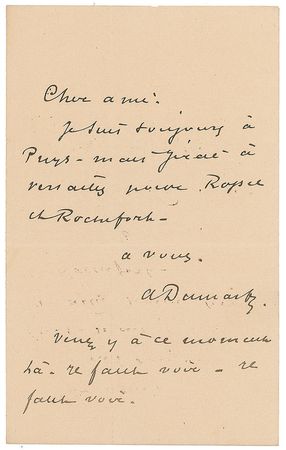 Cher ami.
Je suis toujours à
Puys - mais j'irai à
Versailles pour Rossel
et Rochefort -
a vous.
A Dumas f.
Venez y à ce moment
là. Il faut voir - il
faut voir.